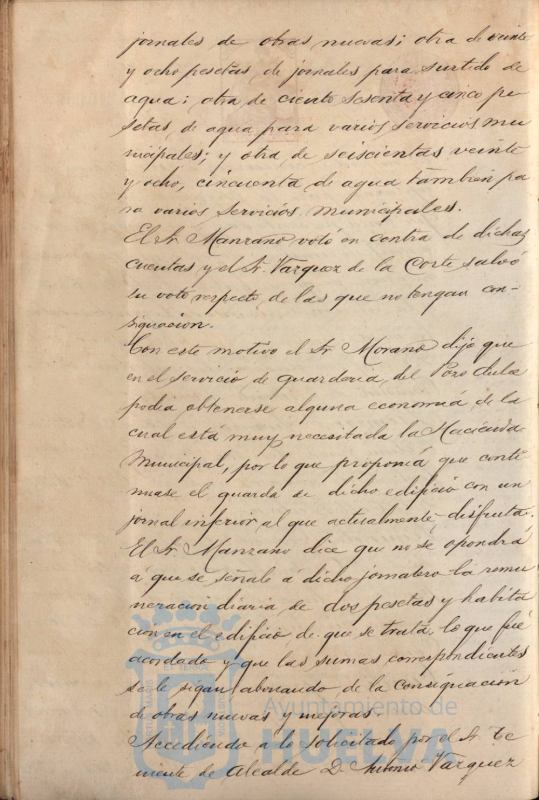 jornales de obras nuevas; otra de veinte
y ocho pesetas de jornales para surtido de
agua; otra de ciento sesenta y cinco pe
setas de agua para varios servicios mu
nicipales; y otra de seiscientas veinte
y ocho, cincuenta de agua tambien pa
ra varios servicios municipales.
El Sr. Manzano votó en contra de dichas
cuentas y el Sr. Vazquez de la Corte salvó
su voto respecto de las que no tengan con-
signacion.
Con este motivo el Sr. Morano dijo que
en el servicio de guarderia del Pozo dulce
podia obtenerse alguna economia de la
cual está muy necesitada la Hacienda
Municipal, por lo que proponia que conti
nuase el guarda de dicho edificio con un
jornal inferior al que actualmente disfruta.
El Sr. Manzano dice que no se opondrá
á que se señale á dicho jornalero la remu
neracion diaria de dos pesetas y habita
cion en el edificio de que se trata, lo que fué
acordado y que las sumas correspondientes
se le sigan abonando de la consignacion
de obras nuevas y mejoras.
Accediendo a lo solicitado por el Sr. Te
niente de Alcalde D. Antonio Vazquez
Ayuntamiento de
HUELVA